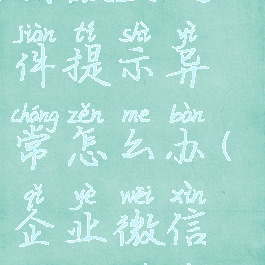 jiàn tí shì yì
件提示异
cháng zěn me bàn
常怎么办(
qǐ yè wēi xìn
企业微信